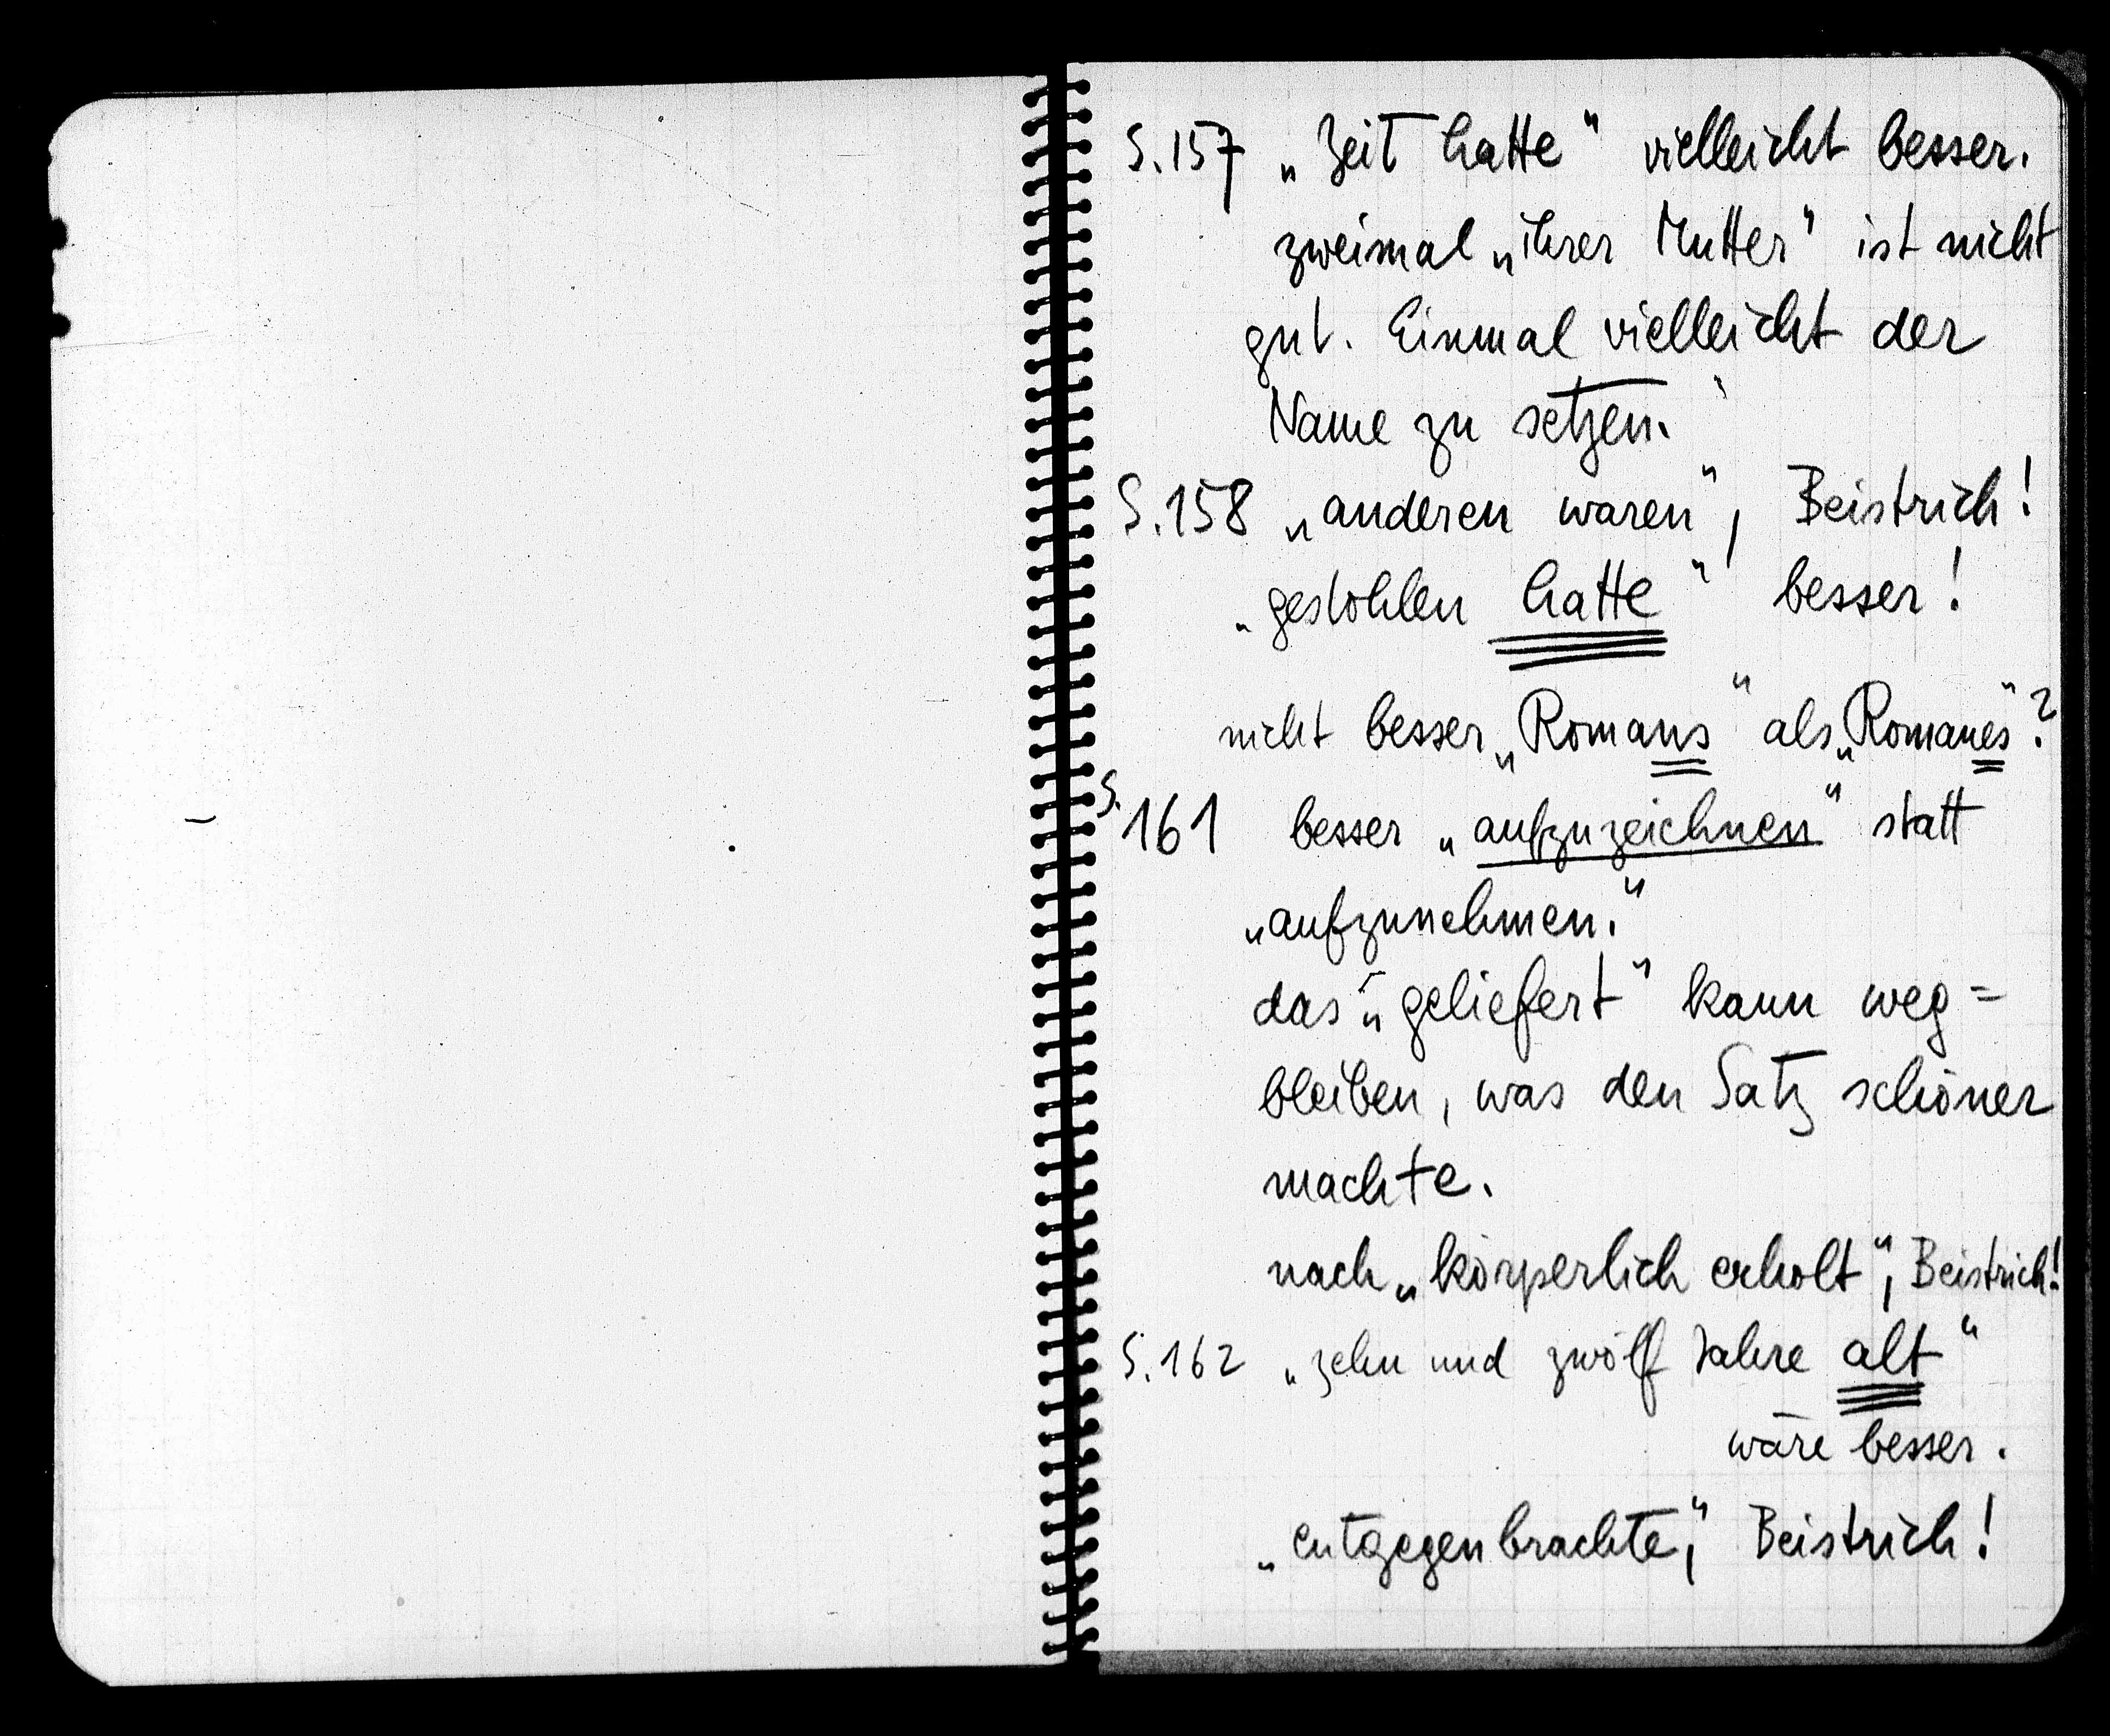 S. 157 „Zeit hatte" vielleicht besser.
zweimal „ihrer Mutter" ist nicht
gut. Einmal vielleicht der
Name zu setzen.
S. 158 „anderen waren", Beistrich!
„gestohlen hatte" besser!
nicht besser „Romans" als „Romanes"?
S. 161 besser „aufzuzeichnen" statt
„aufzunehmen."
das „geliefert" kann weg=
bleiben, was den Satz schöner
machte.
nach „körperlich erholt", Beistrich!
S. 162 „zehn und zwölf Jahre alt"
wäre besser.
„entgegenbrachte," Beistrich!